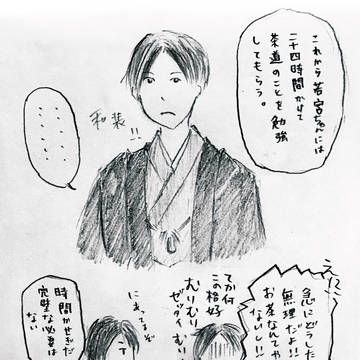 これから若宮ちゃんには
二十四時間かけて
茶道のことを勉強
してもらう。
和装!!
‥‥‥‥‥
‥‥‥‥
えっ!?
急にどうした
無理だよ!
お茶なんてや
ないし!!
てか何
この格好
むりむり
ゼッタイむり
にあってるぞ
時間かせぎだ
完璧な必要は
ない